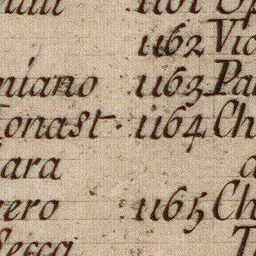 1162 Vic
niano 1163 Pa
onast. 1164 Ch
ara
ero 1165 Ch